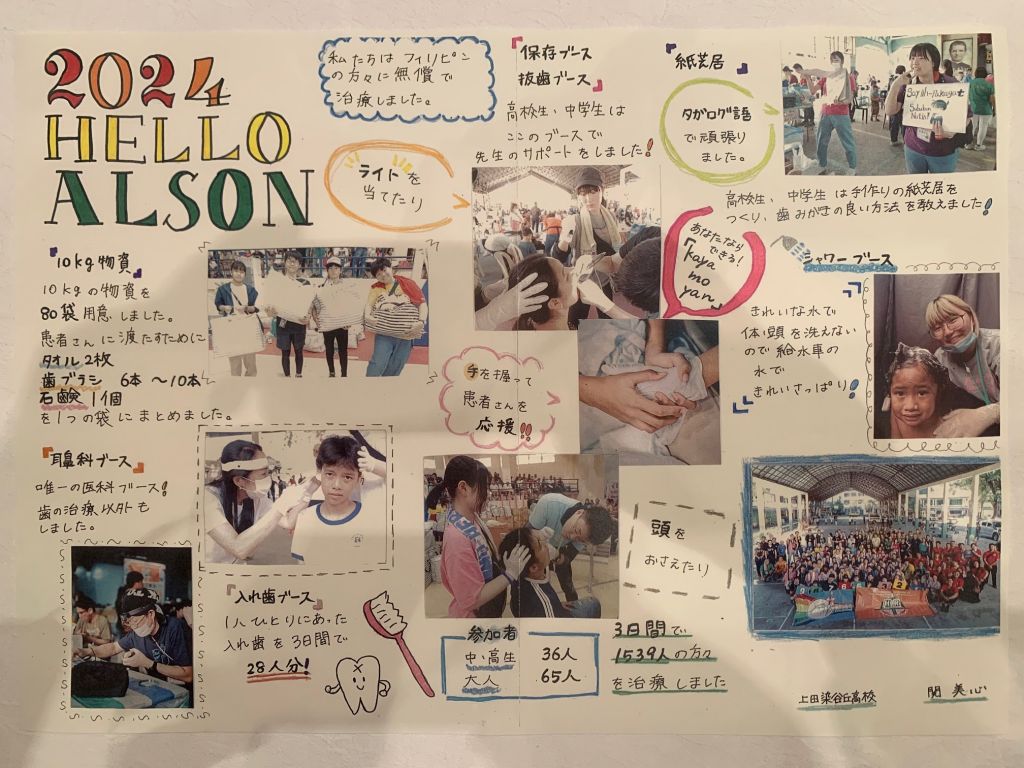 2024
HELLO
ALSON
私たちは フィリピン
の方々に無償で
治療しました。
『保存ブース
抜歯ブース』
高校生、中学生は
ここのブースで
先生のサポートをしました!
『紙芝居』
タガログ語
で頑張り
ました。
Say Hi-Aabaya't
高校生、中学生は手作りの紙芝居を
つくり、歯みがきの良い方法を教えました!
ライトを
当てたり
『10kg物資』
10kgの物資を
80袋用意しました。
患者さんに渡たすために
タオル2枚
歯ブラシ 6本〜10本
石鹸 1個
を1つの袋にまとめました。
あなたなら
できる!
『kaya
mo
yan』
シャワーブース
きれいな水で
体・頭を洗えない
ので給水車の
水で
きれいさっぱり!
手を握って
患者さんを
応援!!
『耳鼻科ブース』
唯一の医科ブース!
歯の治療以外も
しました。
頭を
おさえたり
『入れ歯ブース』
1人ひとりにあった
入れ歯を3日間で
28人分!
参加者
中・高生 36人
大人 65人
3日間で
1539人の方々
を治療しました
上田染谷丘高校